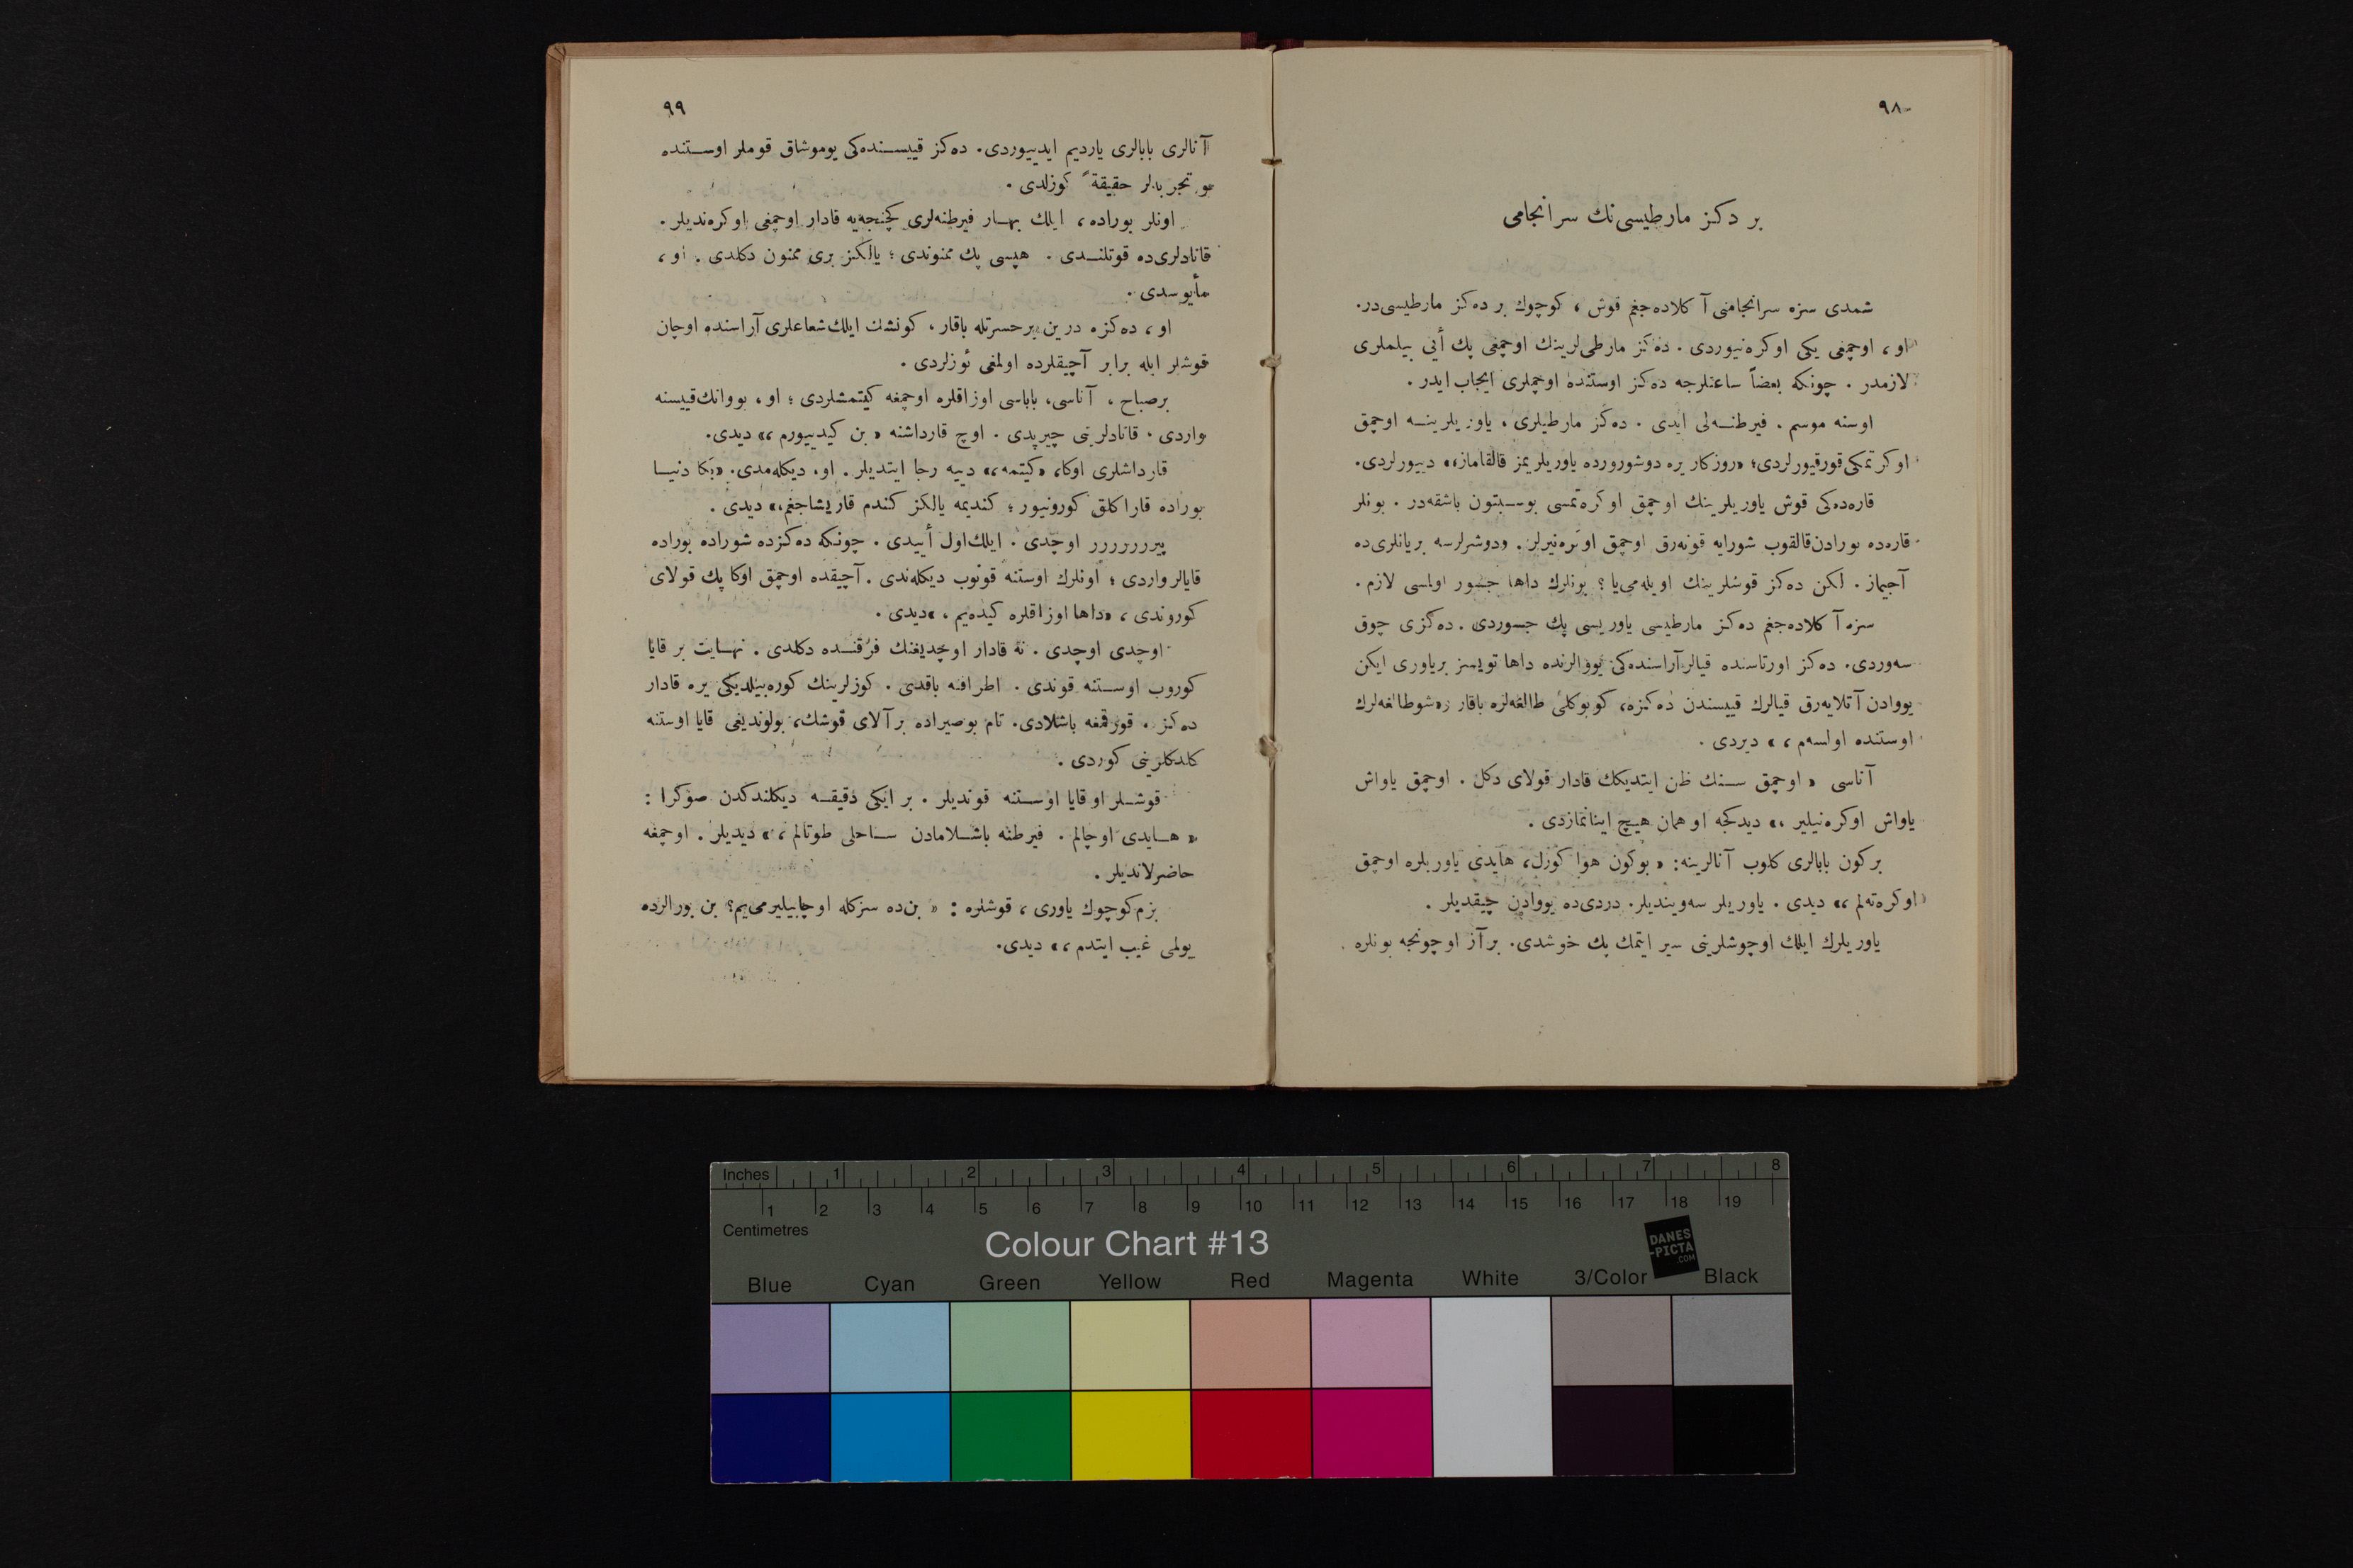 ٩٨
بر دكز مارطیسی‌نك سرانجامی
شمدی سزه سرانجامنی آ كلاده‌جغم قوش ، كوچوك بر ده‌كز مارطیسی‌در.
او ، اوچمغی یكی اوكره‌نیوردی . ده‌كز مارطی‌لرینك اوچمغی پك أیی بیلملری
لازمدر . چونكه بعضاً ساعتلرجه ده‌كز اوستنده اوچملری ایجاب ایدر .
اوسنه موسم . فیرطنــه‌لی ایدی . ده‌كز مارطیلری ، یاوریلرینــه اوچمق
اوكرتمكی قورقیورلردی؛ «روزكار یره دوشورورده یاوریلریمز قالقاماز،» دییورلردی.
قاره‌ده‌كی قوش یاوریلرینك اوچمق اوكره‌تمسی بوسبتون باشقه‌در . بونلر
قاره‌ده بورادن قالقوب شورایه قونه‌رق اوچمق اوكره‌نیرلر . دوشرلرسه بریانلری‌ده
آجیماز . لكن ده‌كز قوشلرینك اویله‌می‌یا ؟ بونلرك داها جسور اولمسی لازم .
سزه آ كلاده‌جغم ده‌كز مارطیسی یاوریسی پك جسوردی . ده‌كزی چوق
سه‌وردی. ده‌كز اورتاسنده قیالر آراسنده‌كی یووالرنده داها تویسز بریاوری ایكن
یووادن آتلایه‌رق قیالرك قییسندن ده‌كزه، كوبوكلی طالغه‌لره باقار «شوطالغه‌لرك
اوستنده اولسه‌م ، » دیردی .
آناسی « اوچمق ســنك ظن ایتدیكك قادار قولای دكل . اوچمق یاواش
یاواش اوكره‌نیلیر ،» دیدكجه او همان هیچ اینانمازدی .
بركون بابالری كلوب آنالرینه: « بوكون هوا كوزل، هایدی یاوریلره اوچمق
اوكره‌ته‌لم ،» دیدی . یاوریلر سه‌ویندیلر. دردی‌ده یووادن چیقدیلر .
یاوریلرك ایلك اوچوشلرینی سیر ایتمك پك خوشدی. برآز اوچونجه بونلره
٩٩
آنالری بابالری یاردیم ایدییوردی. ده‌كز قییســنده‌كی یوموشاق قوملر اوســتنده
بو تجربه‌لر حقیقةً كوزلدی .
اونلر بوراده ، ایلك بهــار فیرطنه‌لری كچنجه‌یه قادار اوچمغی اوكره‌ندیلر .
قانادلری‌ده قوتلنــدی . هپسی پك ممنوندی ؛ یالكز بری ممنون دكلدی . او ،
مأیوسدی .
او ، ده‌كزه درین برحسرتله باقار ، كونشك ایلك شعاعلری آراسنده اوچان
قوشلر ایله برابر آچیقلرده اولمغی ئوزلردی .
برصباح ، آناسی، باباسی اوزاقلره اوچمغه كیتمشلردی ؛ او ، یووانك قییسنه
واردی ، قانادلرینی چیرپدی . اوچ قارداشنه « بن كیدییورم ،» دیدی.
قارداشلری اوكا، «كیتمه،» دییه رجا ایتدیلر . او، دیكله‌مدی. «بكا دنیــا
بوراده قاراكلق كورونیور ؛ كندیمه یالكز كندم قاریشاجغم،» دیدی .
پیررررررر اوچدی . ایلك اول أییدی . چونكه ده‌كزده شوراده بوراده
قایالر واردی ؛ اونلرك اوستنه قونوب دیكله‌ندی . آچیقده اوچمق اوكا پك قولای
كوروندی ، «داها اوزاقلره كیده‌یم ، »دیدی .
اوچدی اوچدی . نه قادار اوچدیغنك فرقنــده دكلدی . نهــایت بر قایا
كوروب اوســتنه قوندی . اطرافنه باقدی . كوزلرینك كوره‌بیلدیكی یره قادار
ده‌كز . قورقمغه باشلادی. تام بوصیراده برآلای قوشك، بولوندیغی قایا اوستنه
كلدكلرینی كوردی .
قوشــلر او قایا اوســتنه قوندیلر . بر ایكی دقیقــه دیكلندكدن صوكرا :
« هــایدی اوچالم . فیرطنه باشــلامادن ســاحلی طوتالم ، » دیدیلر . اوچمغه
حاضرلاندیلر .
بزم كوچوك یاوری ، قوشلره : « بن‌ده سزكله اوچابیلیرمی‌یم؟ بن بورالرده
یولمی غیب ایتدم ،» دیدی.
Inches 1 2 3 4 5 6 7 8
1 2 3 4 5 6 7 8 9 10 11 12 13 14 15 16 17 18 19
Centimetres
Colour Chart #13
DANES
-PICTA
.COM
Blue Cyan Green Yellow Red Magenta White 3/Color Black